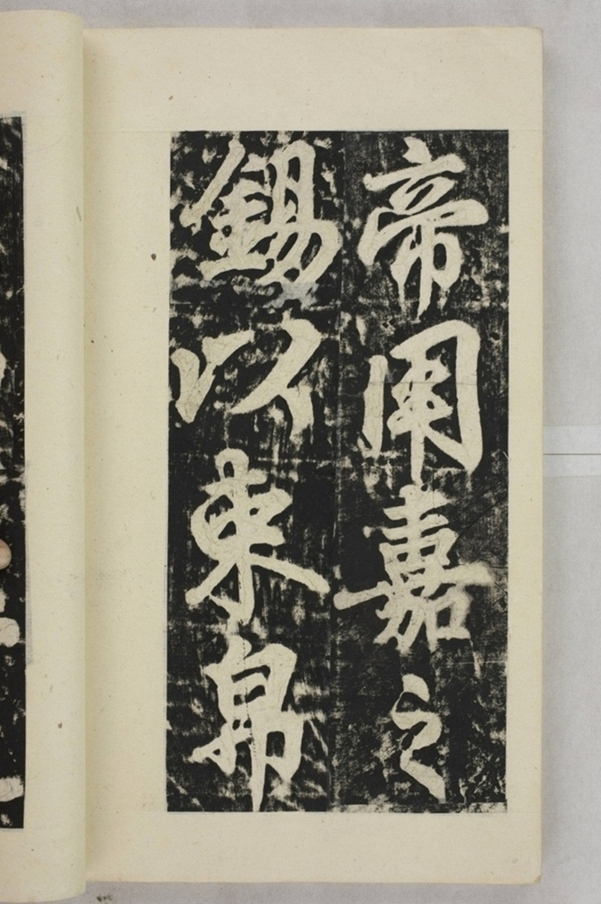 帝用嘉之
錫以束帛